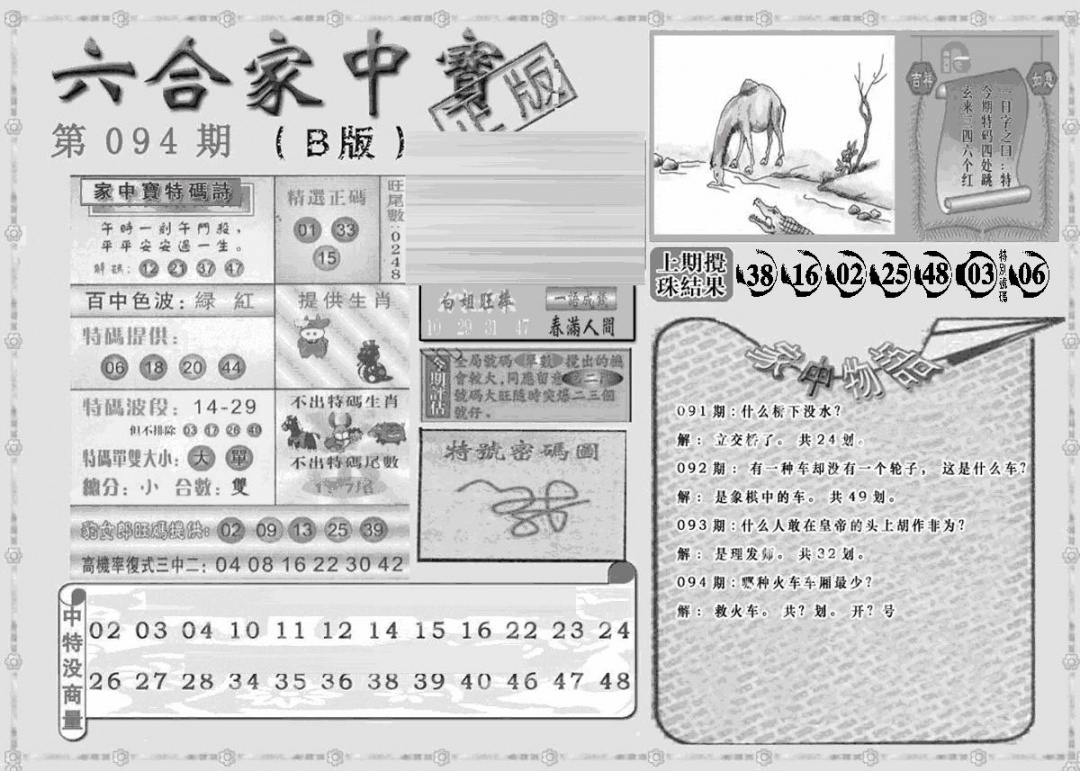 六合家中寶
正版
第094期 (B版)
家中寶特碼詩
午時一到午門殺，
平平安安過一生。
解碼: 12 21 37 47
精選正碼
01 33
15
旺尾數:0248
百中色波: 綠 紅
特碼提供:
06 18 20 44
提供生肖
特碼波段: 14-29
但不排除 03 17 26 49
特碼單雙大小: 大 單
總分: 小 合數: 雙
不出特碼生肖
不出特碼尾數
旺碼提供: 02 09 13 25 39
高機率復式三中二: 04 08 16 22 30 42
白姐旺棒
10 29 31 47
一语成
春滿人間
今期評估
全局號碼單數攪出的機
會較大,同應留意
號碼大旺隨時突爆二三個
號仔。
特號密碼圖
中特没商量
02 03 04 10 11 12 14 15 16 22 23 24
26 27 28 34 35 36 38 39 40 46 47 48
吉祥
如意
一日字之曰:特
今期特码四处跳
玄来二四六个红
上期攪珠結果
38 16 02 25 48 03 特別號碼 06
家中物語
091期:什么桥下没水?
解: 立交桥了。 共24划。
092期: 有一种车却没有一个轮子, 这是什么车?
解: 是象棋中的车。 共49划。
093期:什么人敢在皇帝的头上胡作非为?
解: 是理发师。 共32划。
094期:哪种火车车厢最少?
解: 救火车。 共?划。 开?号